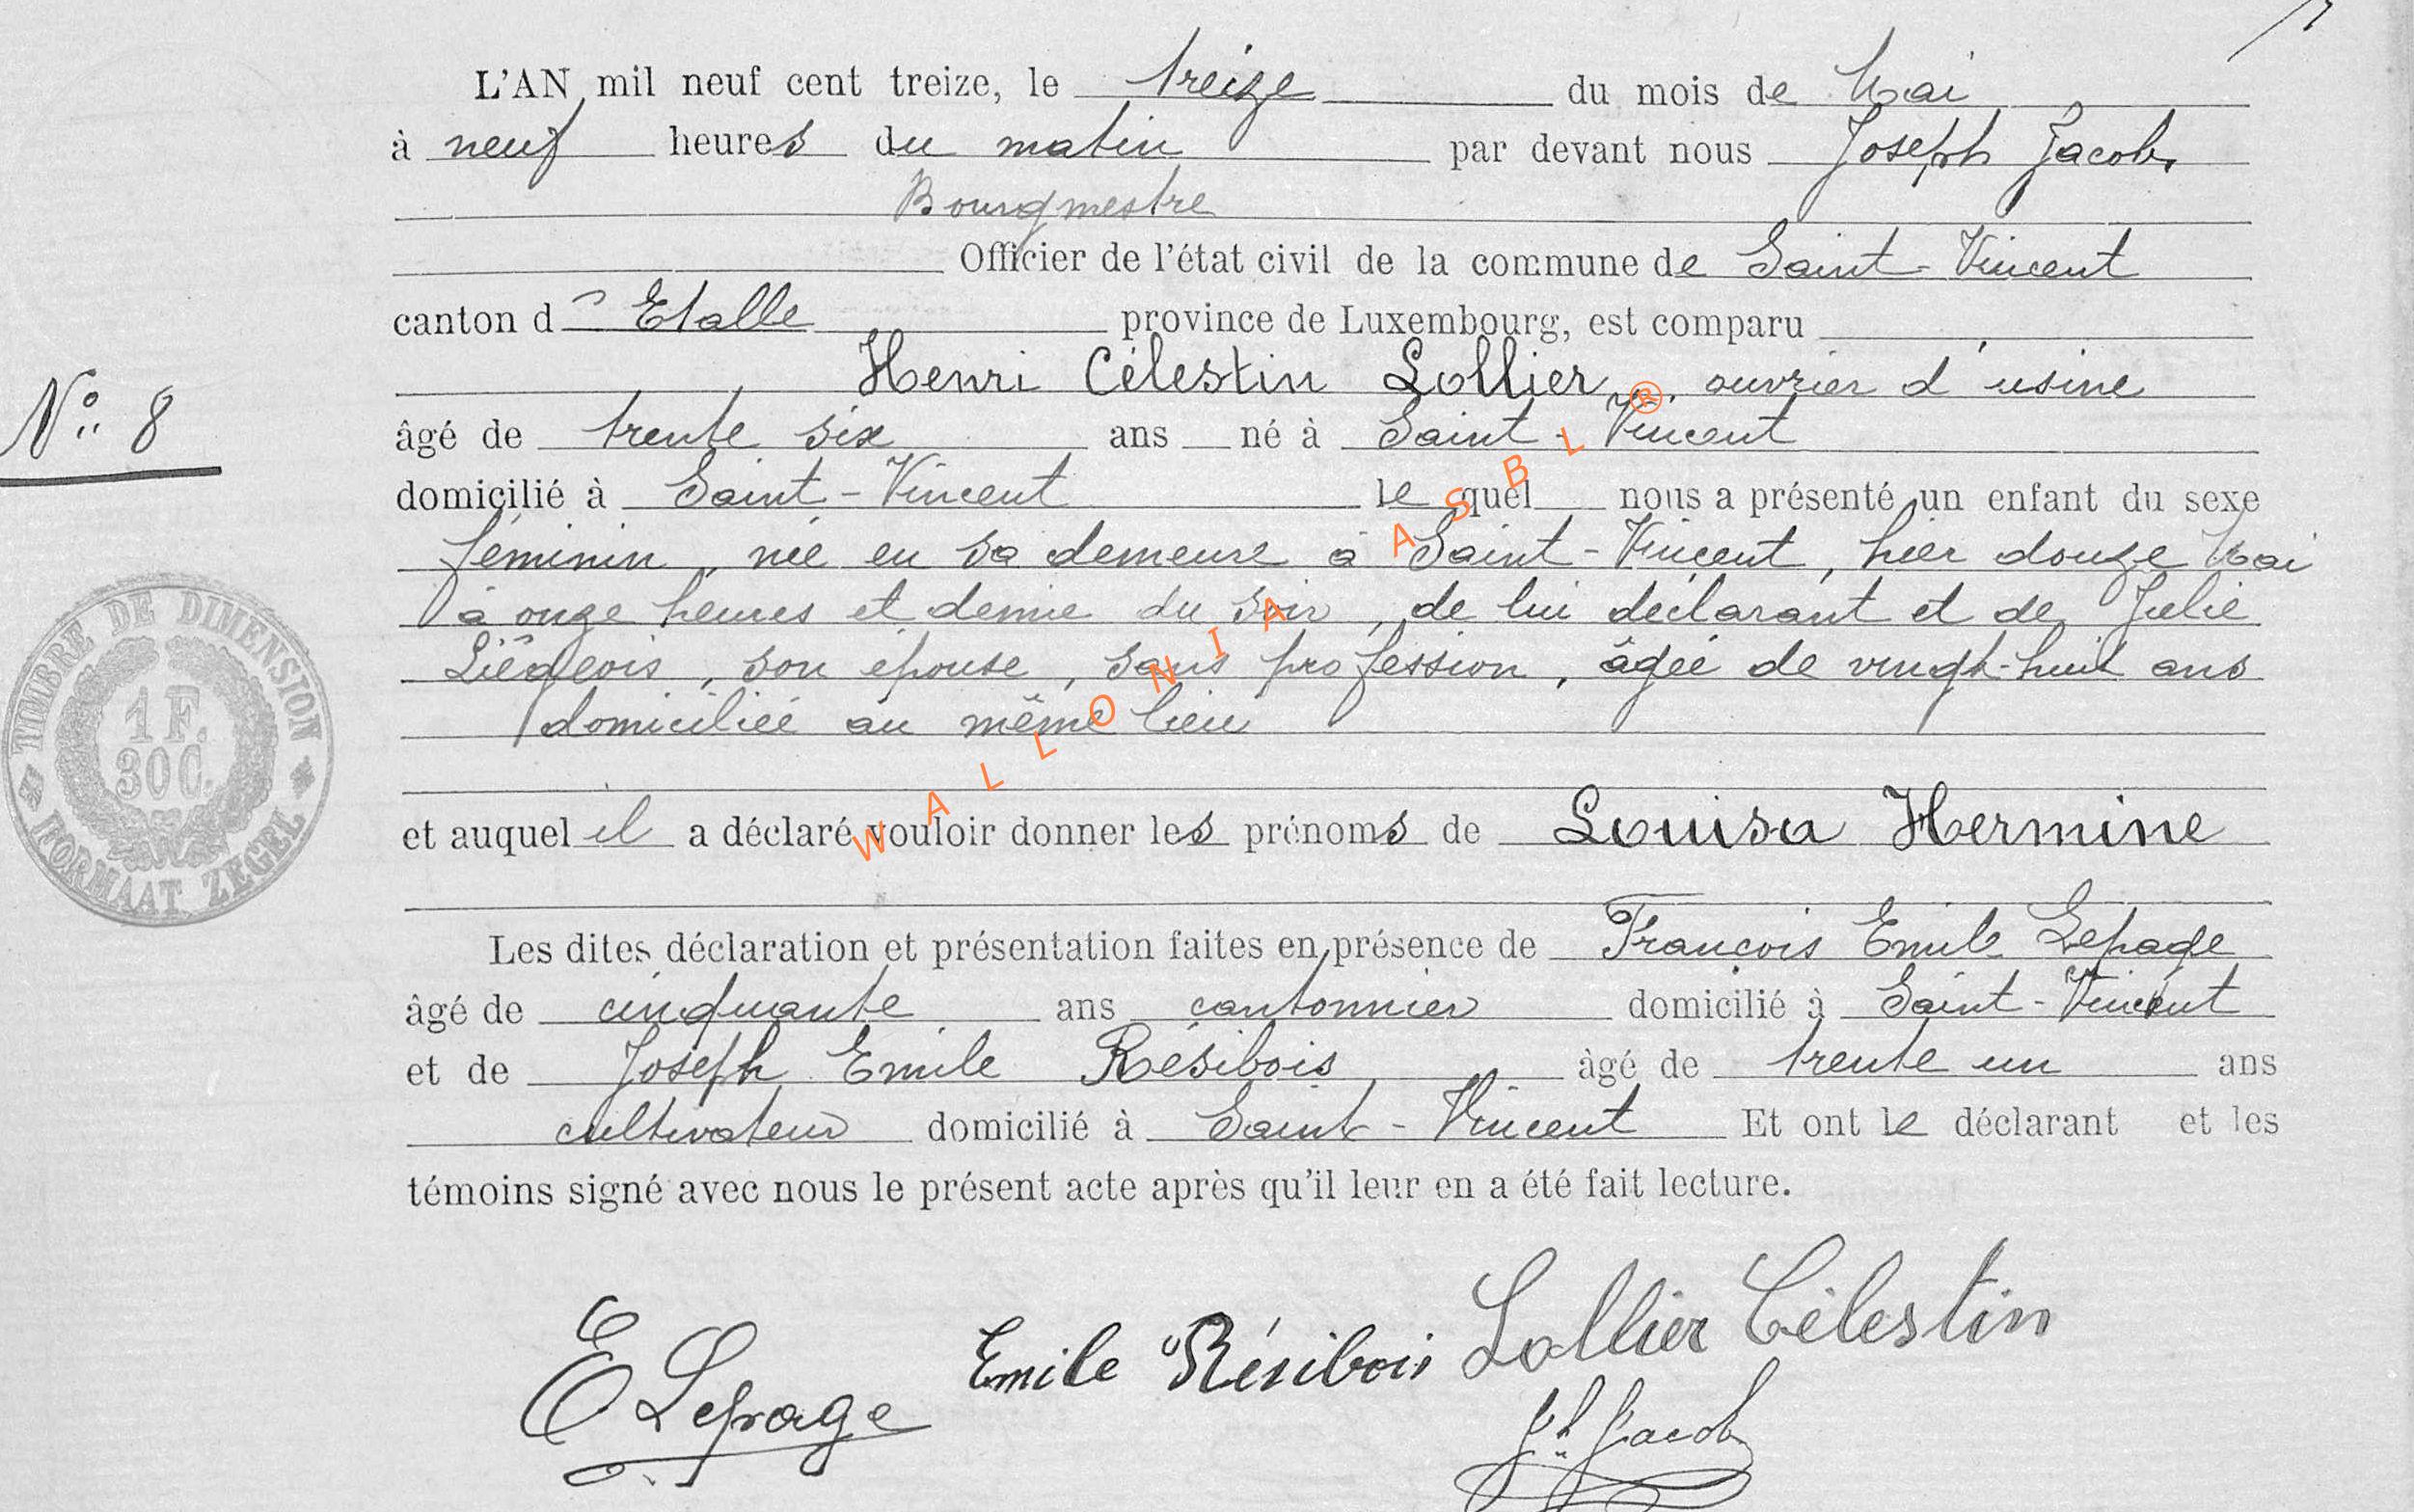 L'AN mil neuf cent treize, le treize du mois de Mai
à neuf heures du matin par devant nous Joseph Jacob,
Bourgmestre
Officier de l'état civil de la commune de Saint-Vincent
canton d' Etalle province de Luxembourg, est comparu
Henri Célestin Lollier, ouvrier d'usine
N° 8
âgé de trente six ans né à Saint-Vincent
domicilié à Saint-Vincent lequel nous a présenté un enfant du sexe
féminin, née en sa demeure à Saint-Vincent, hier douze Mai
à onze heures et demie du soir, de lui déclarant et de Julie
Liégeois, son épouse, sans profession, âgée de vingt-huit ans
domiciliée au même lieu
et auquel il a déclaré vouloir donner les prénoms de Louisa Hermine
Les dites déclaration et présentation faites en présence de François Emile Lepage
âgé de cinquante ans cantonnier domicilié à Saint-Vincent
et de Joseph Emile Résibois âgé de trente un ans
cultivateur domicilié à Saint-Vincent Et ont le déclarant et les
témoins signé avec nous le présent acte après qu'il leur en a été fait lecture.
E Lepage Emile Résibois Lollier Célestin
Jh Jacob
TIMBRE DE DIMENSION
1 F.
30C.
FORMAAT ZEGEL
WALLONIA ASBL ®